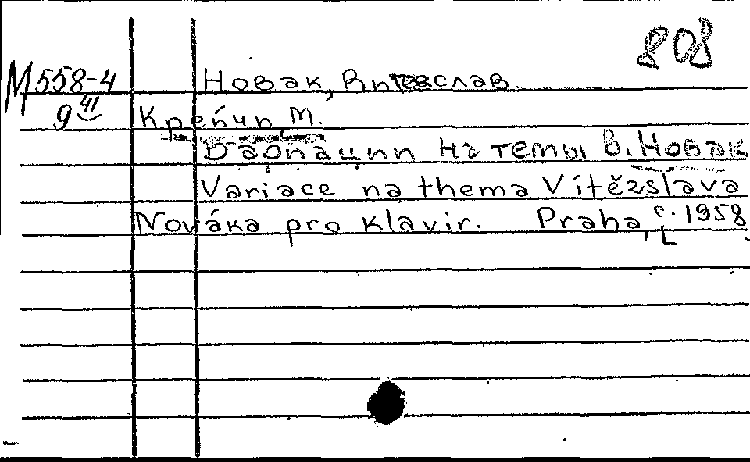 808
М558-4 Новак, Витеслав
9 41 Крейчи, М.
Вариации на темы В. Новак
Variace na thema Vítězslava
Nováka pro klavir. Praha, c. 1958